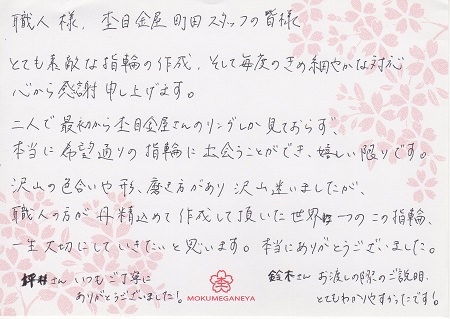 職人様、杢目金屋 町田スタッフの皆様
とても素敵な指輪の作成、そして毎度のきめ細やかな対応
心から感謝申し上げます。
二人で最初から杢目金屋さんのリングしか見ておらず、
本当に希望通りの指輪に出会うことができ、嬉しい限りです。
沢山の色合いや形、磨き方があり沢山迷いましたが、
職人の方が丹精込めて作成して頂いた世界に一つのこの指輪、
一生大切にしていきたいと思います。本当にありがとうございました。
坪井さん いつもご丁寧に
ありがとうございました!
鈴木さん お渡しの際のご説明、
とてもわかりやすかったです!
MOKUMEGANEYA